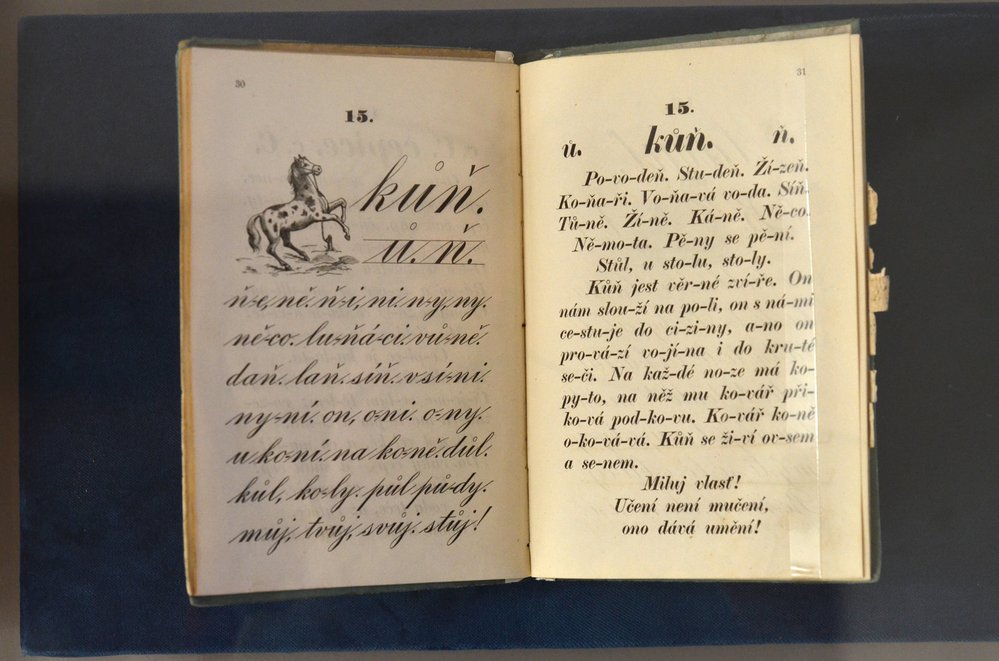 30
15.
kůň.
ů. ň.
ň-e, ně. ň-i, ni. n-y, ny.
ně-co. lu-ňá-ci. vů-ně.
daň. laň. síň. v sí-ni.
ny-ní. on, o-ni. o-ny.
u ko-ní. na ko-ně. důl.
kůl, ko-ly. půl pů-dy.
můj, tvůj, svůj. stůj!
31
15.
ů. kůň. ň.
Po-vo-deň. Stu-deň. Ží-zeň.
Ko-ňa-ři. Vo-ňa-vá vo-da. Síň.
Tů-ně. Ží-ně. Ká-ně. Ně-co.
Ně-mo-ta. Pě-ny se pě-ní.
Stůl, u sto-lu, sto-ly.
Kůň jest věr-né zví-ře. On
nám slou-ží na po-li, on s ná-mi
ce-stu-je do ci-zi-ny, a-no on
pro-vá-zí vo-jí-na i do kru-té
se-či. Na kaž-dé no-ze má ko-
py-to, na něž mu ko-vář při-
ko-vá pod-ko-vu. Ko-vář ko-ně
o-ko-vá-vá. Kůň se ži-ví ov-sem
a se-nem.
Miluj vlasť!
Učení není mučení,
ono dává umění!